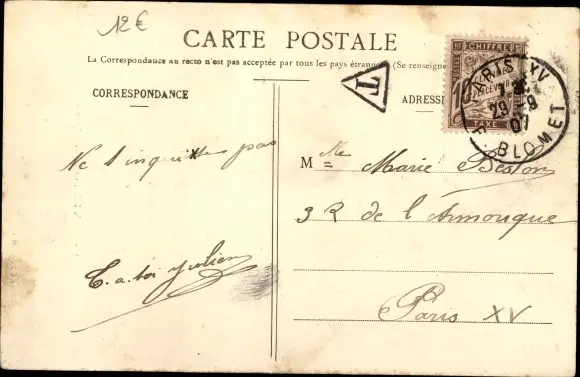 12€
CARTE POSTALE
La Correspondance au recto n'est pas acceptée par tous les pays étrangers (Se renseigne
CORRESPONDANCE
ADRESSE
T
CHIFFRE
10
PERCEVOIR
TAXE
PARIS XV
29 8
07
R. BLOMET
Ne t'inquittes pas
T. a. toi Julien
Mlle Marie Beston
3 R de l'Armorique
Paris XV